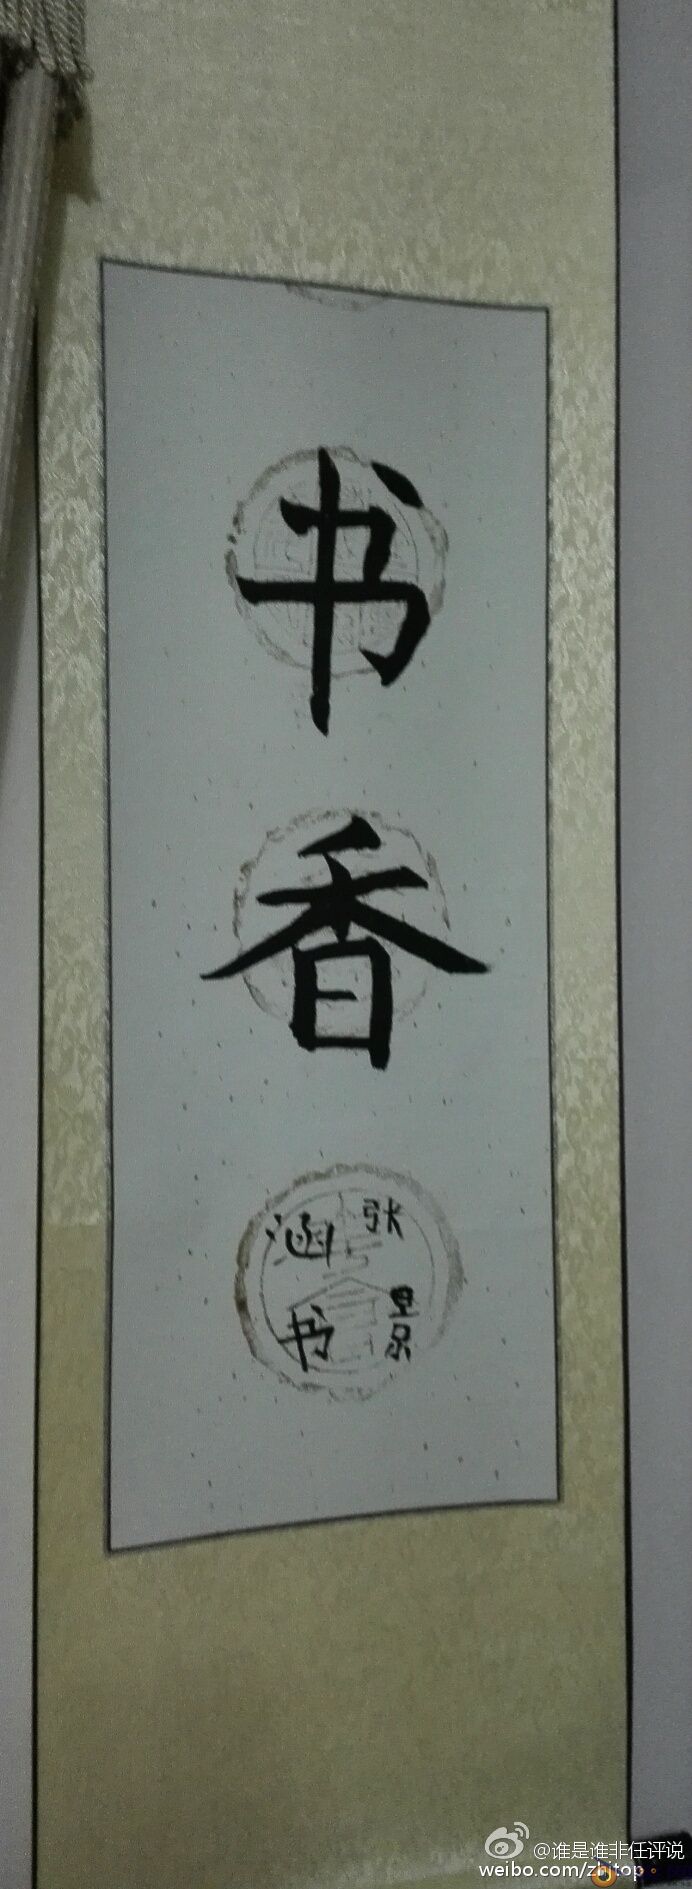 书
香
张景
涵书
@谁是谁非任评说
weibo.com/zhjtop